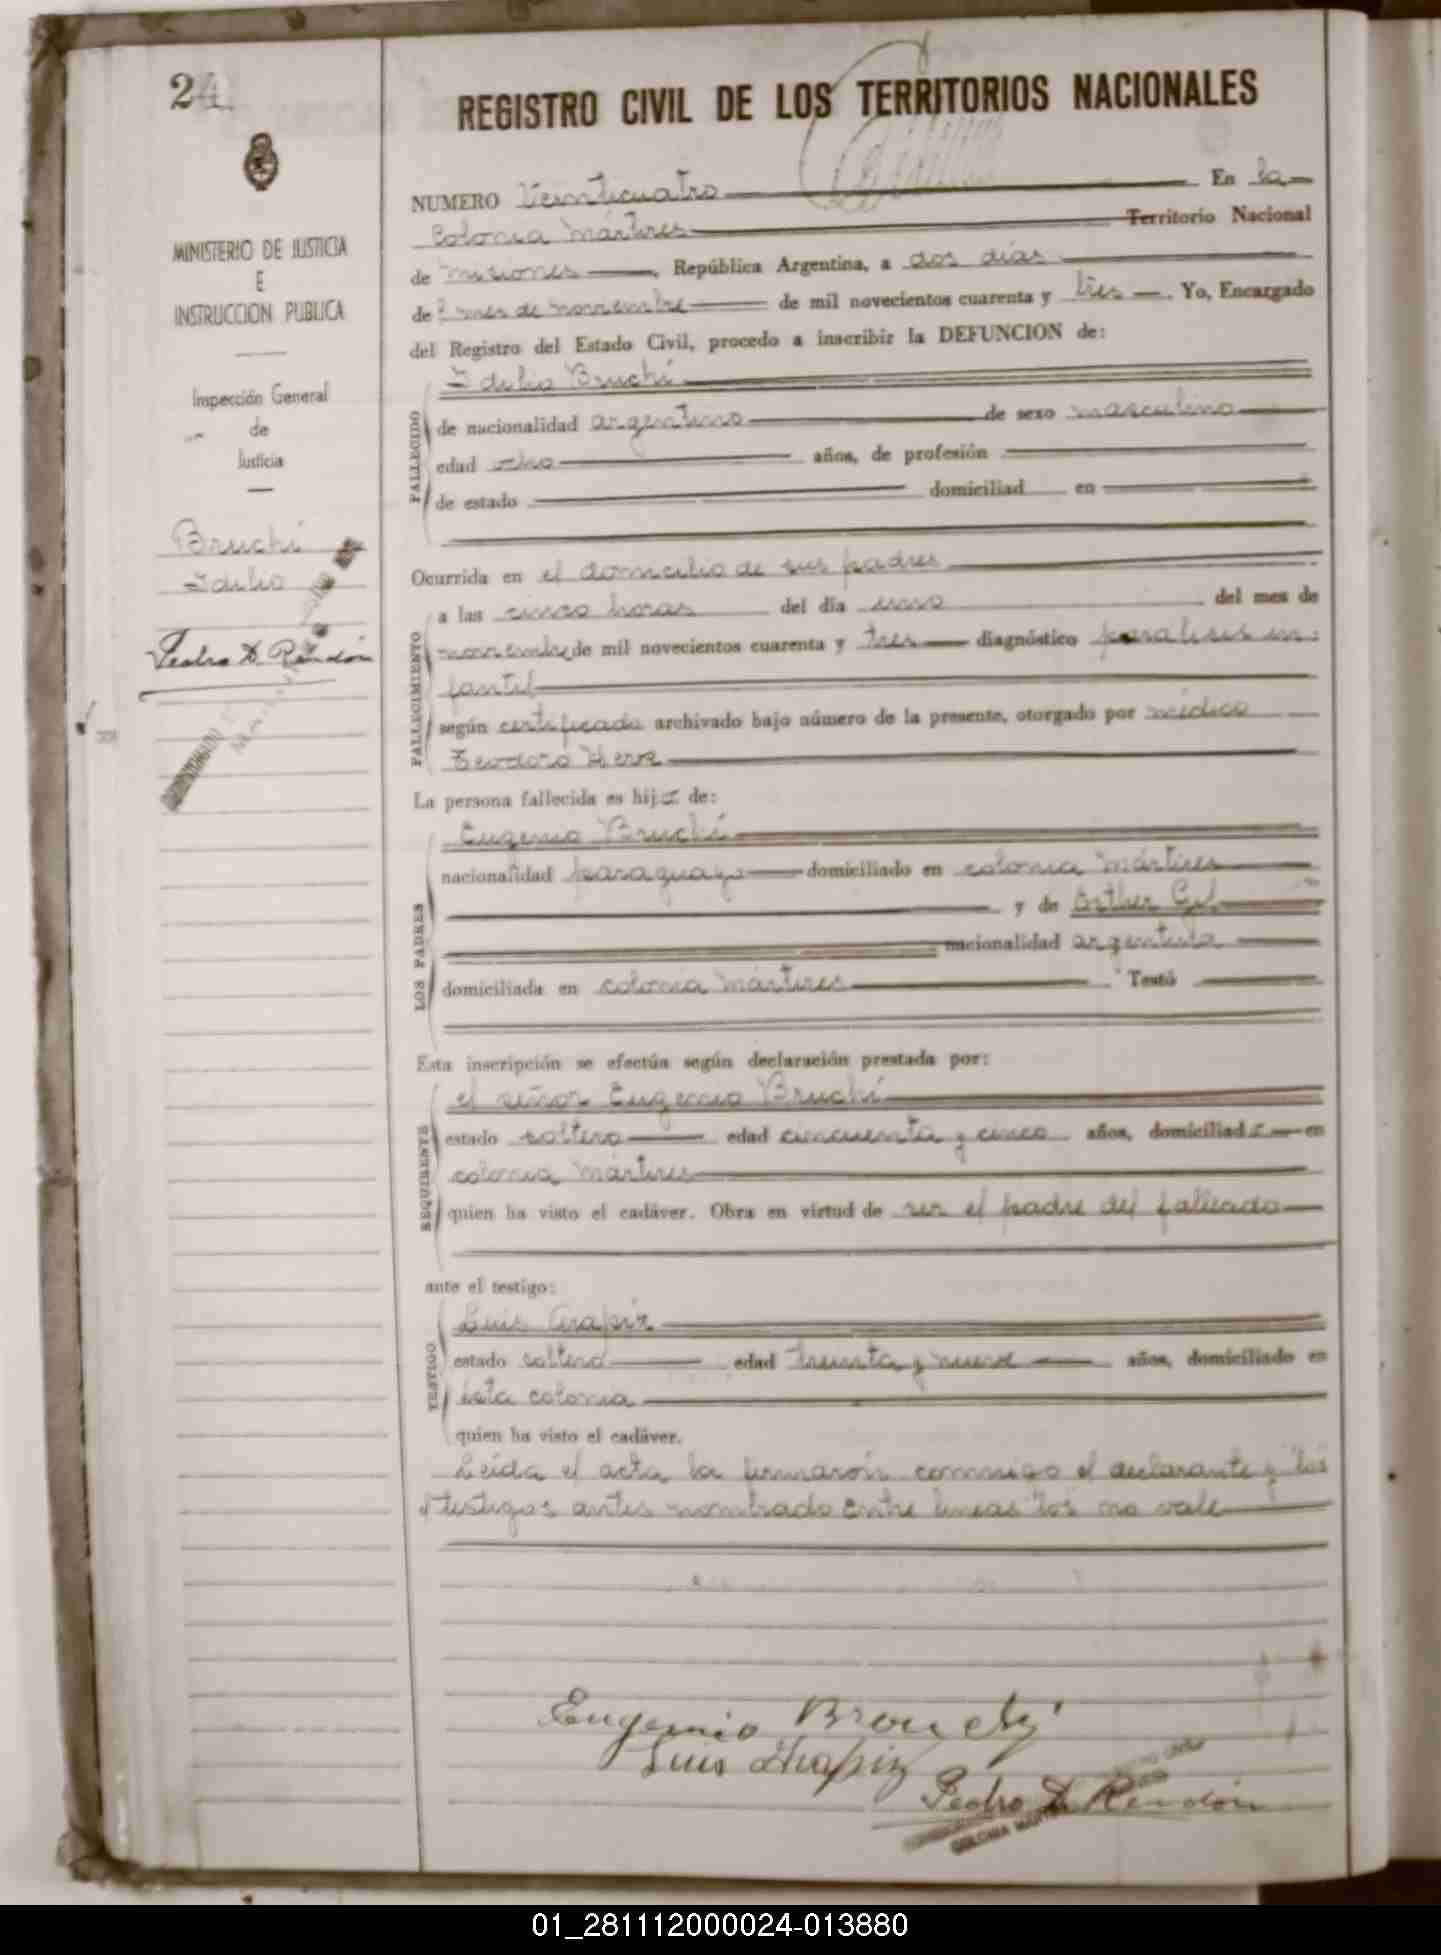 24
REGISTRO CIVIL DE LOS TERRITORIOS NACIONALES
MINISTERIO DE JUSTICIA
E
INSTRUCCION PUBLICA
Inspección General
de
Justicia
Bruchi
Idilio
Pedro D. Rendón
NUMERO Veinticuatro En la
Colonia Mártires Territorio Nacional
de Misiones, República Argentina, a dos días
del mes de noviembre de mil novecientos cuarenta y tres. Yo, Encargado
del Registro del Estado Civil, procedo a inscribir la DEFUNCION de:
FALLECIDO
Idilio Bruchi
de nacionalidad argentino de sexo masculino
edad años, de profesión
de estado domiciliad en
Ocurrida en el domicilio de sus padres
FALLECIMIENTO
a las cinco horas del día uno del mes de
noviembre de mil novecientos cuarenta y tres diagnóstico paralisis in:
fantil
según certificado archivado bajo número de la presente, otorgado por médico
Teodoro
La persona fallecida es hijo de:
LOS PADRES
Eugenio Bruchi
nacionalidad paraguayo domiciliado en colonia Mártires
y de Esther Gil
nacionalidad argentina
domiciliada en colonia Mártires. Testó
Esta inscripción se efectúa según declaración prestada por:
REQUIRENTE
el señor Eugenio Bruchi
estado soltero edad cincuenta y cinco años, domiciliado en
colonia Mártires
quien ha visto el cadáver. Obra en virtud de ser el padre del fallecido
ante el testigo:
TESTIGO
Luis Arapiz
estado soltero edad treinta y nueve años, domiciliado en
ésta colonia
quien ha visto el cadáver.
Leída el acta la firmarón conmigo el declarante y "los
el testigos antes nombrado Entre lineas "los" no vale
Eugenio Brouchi
Luis Arapiz
Pedro D. Rendón
COLONIA
01_281112000024-013880